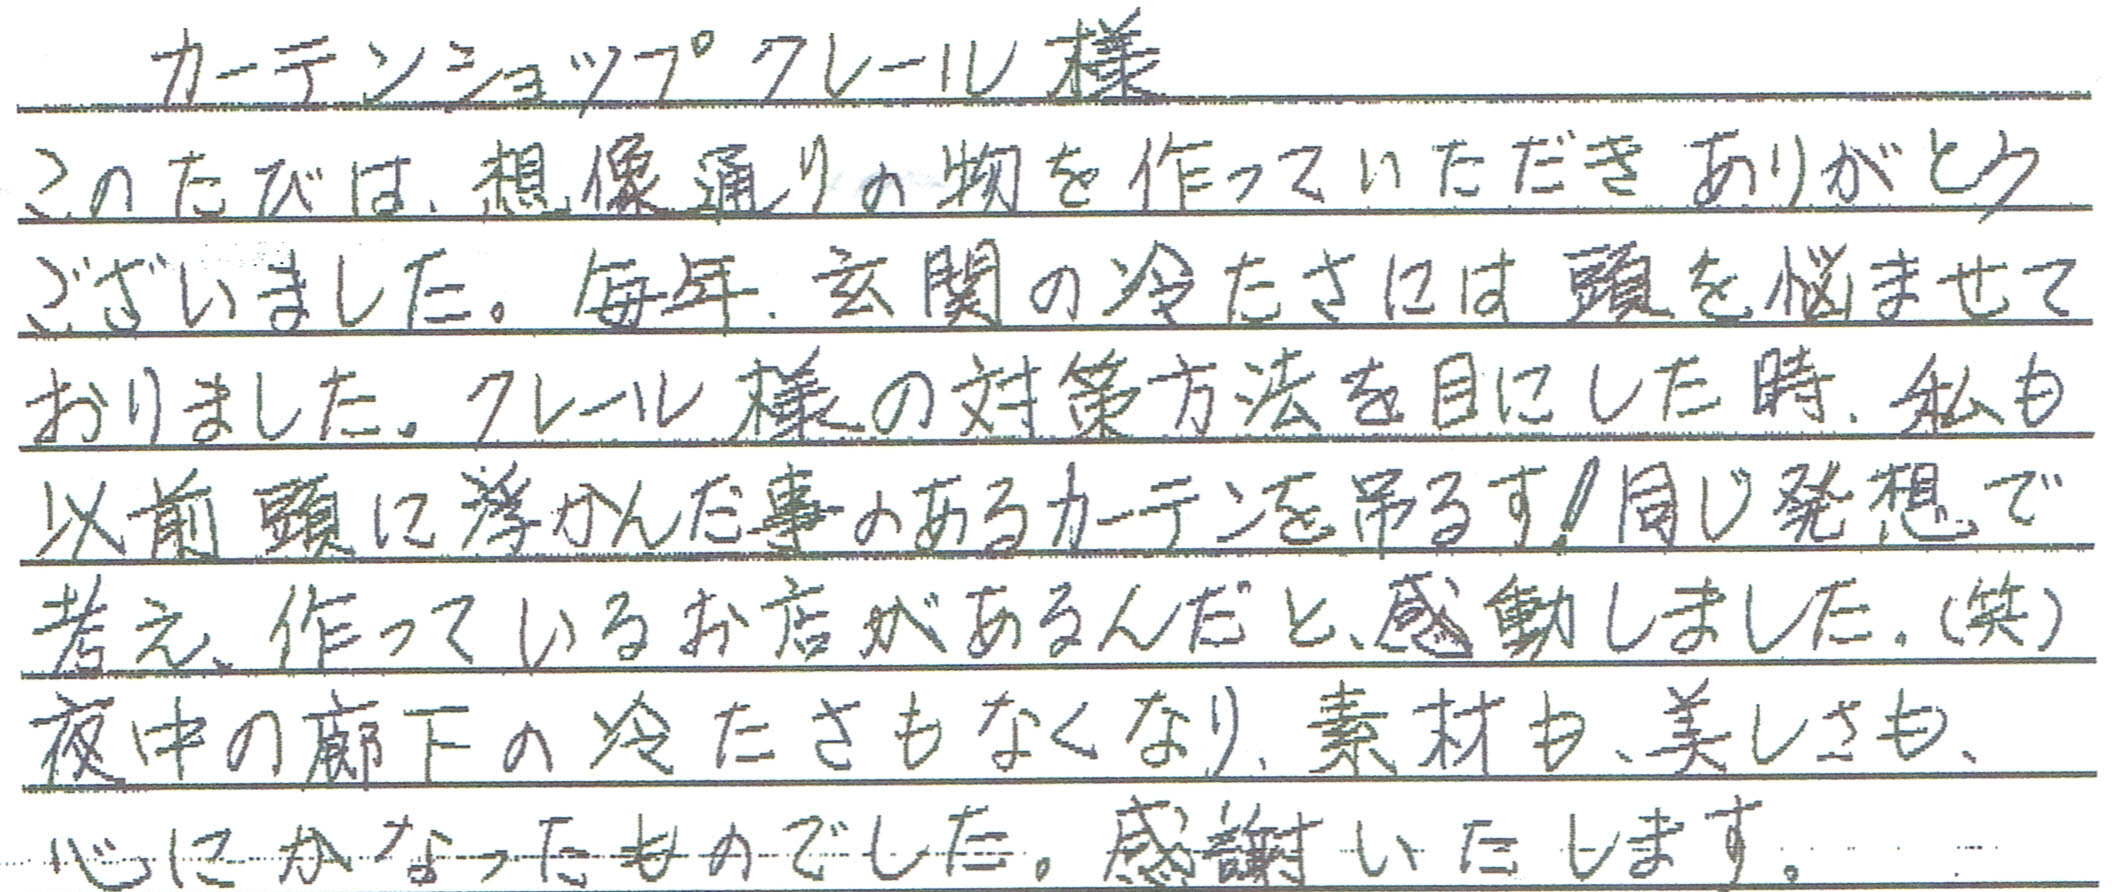 カーテンショップクレール様
このたびは、想像通りの物を作っていただきありがとう
ございました。毎年、玄関の冷たさには頭を悩ませて
おりました。クレール様の対策方法を目にした時、私も
以前頭に浮かんだ事のあるカーテンを吊るす!同じ発想で
考え、作っているお店があるんだと、感動しました。(笑)
夜中の廊下の冷たさもなくなり、素材も、美しさも、
心にかなったものでした。感謝いたします。